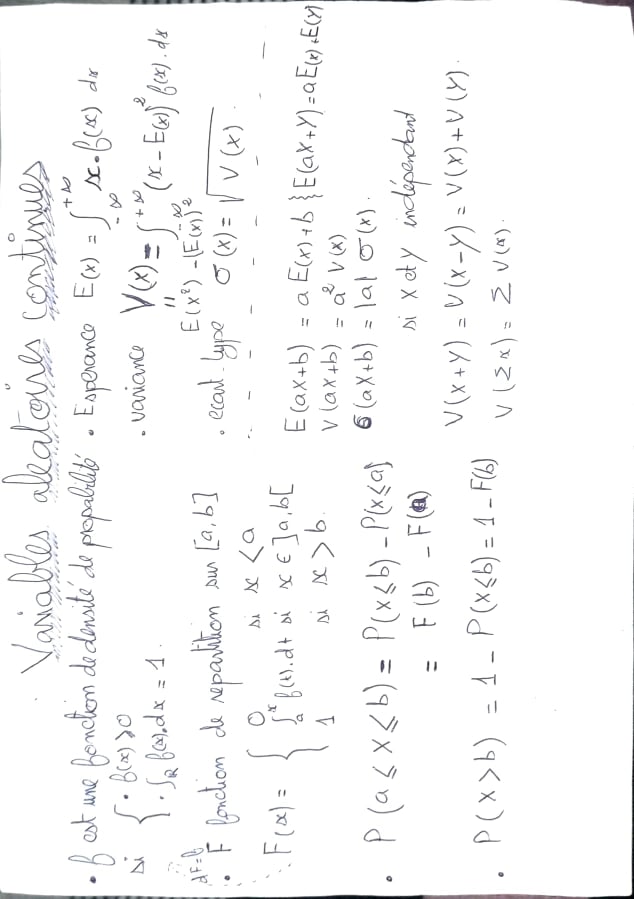 Variables aleatoires continues
• f est une fonction de densité de propabilité
si { • f(x) ⩾ 0
• ∫ℝ f(x).dx = 1.
dF=f
• F fonction de repartition sur [a,b]
F(x) = { 0 si x < a
∫ₐˣ f(t).dt si x ∈ ]a,b[
1 si x > b.
• P(a ⩽ X ⩽ b) = P(X ⩽ b) - P(X ⩽ a)
= F(b) - F(a)
• P(X > b) = 1 - P(X ⩽ b) = 1 - F(b)
• Esperance E(x) = ∫₋∞⁺∞ x.f(x) dx
• variance V(x) = ∫₋∞⁺∞ (x - E(x))² f(x).dx
= E(x²) - (E(x))²
• ecart-type σ(x) = √V(x).
E(aX+b) = a E(x) + b } E(aX+Y) = a E(x) + E(Y)
V(aX+b) = a² V(x)
σ(aX+b) = |a| σ(x).
si x et y indépendant
V(X+Y) = V(X-Y) = V(X) + V(Y).
V(Σx) = Σ V(x).